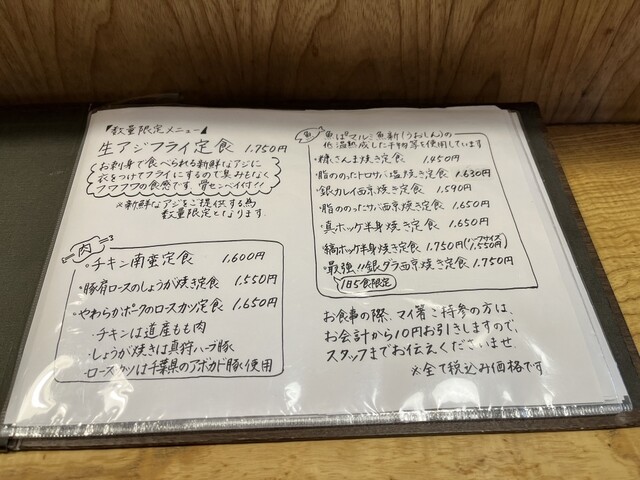 数量限定メニュー
生アジフライ定食 1,750円
お刺身で食べられる新鮮なアジに
衣をつけてフライにするので臭みもなく
フワフワの食感です、骨センベイ付!!
※新鮮なアジをご提供する為
数量限定となります。
肉
・チキン南蛮定食 1,600円
・豚肩ロースのしょうが焼き定食 1,550円
・やわらかポークのロースカツ定食 1,650円
・チキンは道産もも肉
・しょうが焼きは真狩ハーブ豚
ロースカツは千葉県のアボカド豚使用
魚
魚は"マルニ魚新(うおしん)の
低温熟成した干物等を使用しています
・糠さんま焼き定食 1,450円
・脂ののったトロサバ塩焼き定食 1,630円
・銀カレイ西京焼き定食 1,590円
・脂ののったサバ西京焼き定食 1,650円
・真ホッケ半身焼き定食 1,650円
・縞ホッケ半身焼き定食 1,750円(ハーフサイズ 1,550円)
・最強!!銀ダラ西京焼き定食 1,750円
1日5食限定
お食事の際、マイ箸ご持参の方は、
お会計から10円お引きしますので、
スタッフまでお伝えくださいませ
※全て税込み価格です